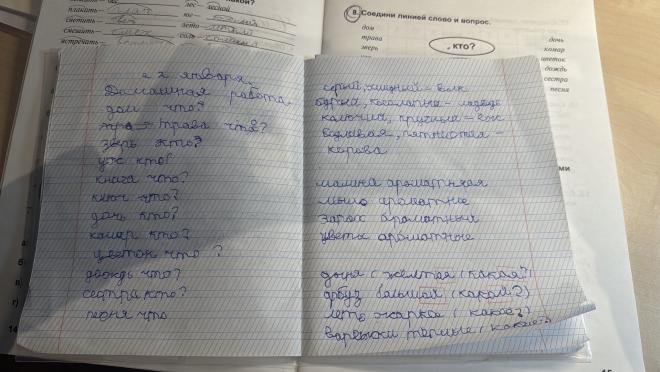 плакать –
светить –
смешить – смех
встречать –
лес – лесной
юг –
лето –
соль –
какой?
8. Соедини линией слово и вопрос.
дом
трава
зверь
кто?
дочь
комар
цветок
дождь
сестра
песня
22 января.
Домашняя работа.
дом что?
трава что?
зверь кто?
уж кто?
книга что?
ключ что?
дочь кто?
комар кто?
цветок что?
дождь что?
сестра кто?
песня что
серый, хищный – волк
бурый, косолапый – медведь
колючий, круглый – ёж
бодливая, пятнистая –
корова
малина ароматная
мыло ароматное
запах ароматный
цветы ароматные
дыня (жёлтая (какая?)
арбуз большой (какой?)
лето жаркое (какое?)
варежки тёплые (какие?)